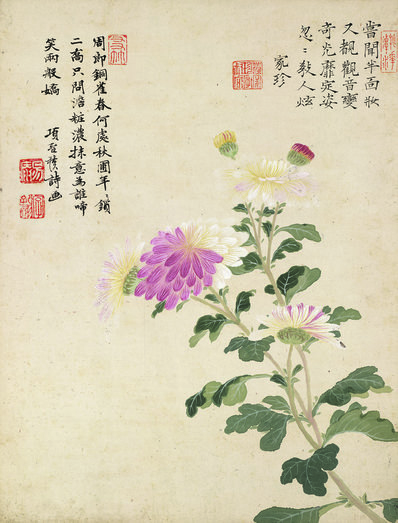 嘗聞半面妝
又覩觀音變
奇光靡定姿
忽忽教人炫
家珍
周郎銅雀春何處秋圃年年鎖
二喬只問淡粧濃抹意為誰啼
笑兩般嬌
項聖謨詩画